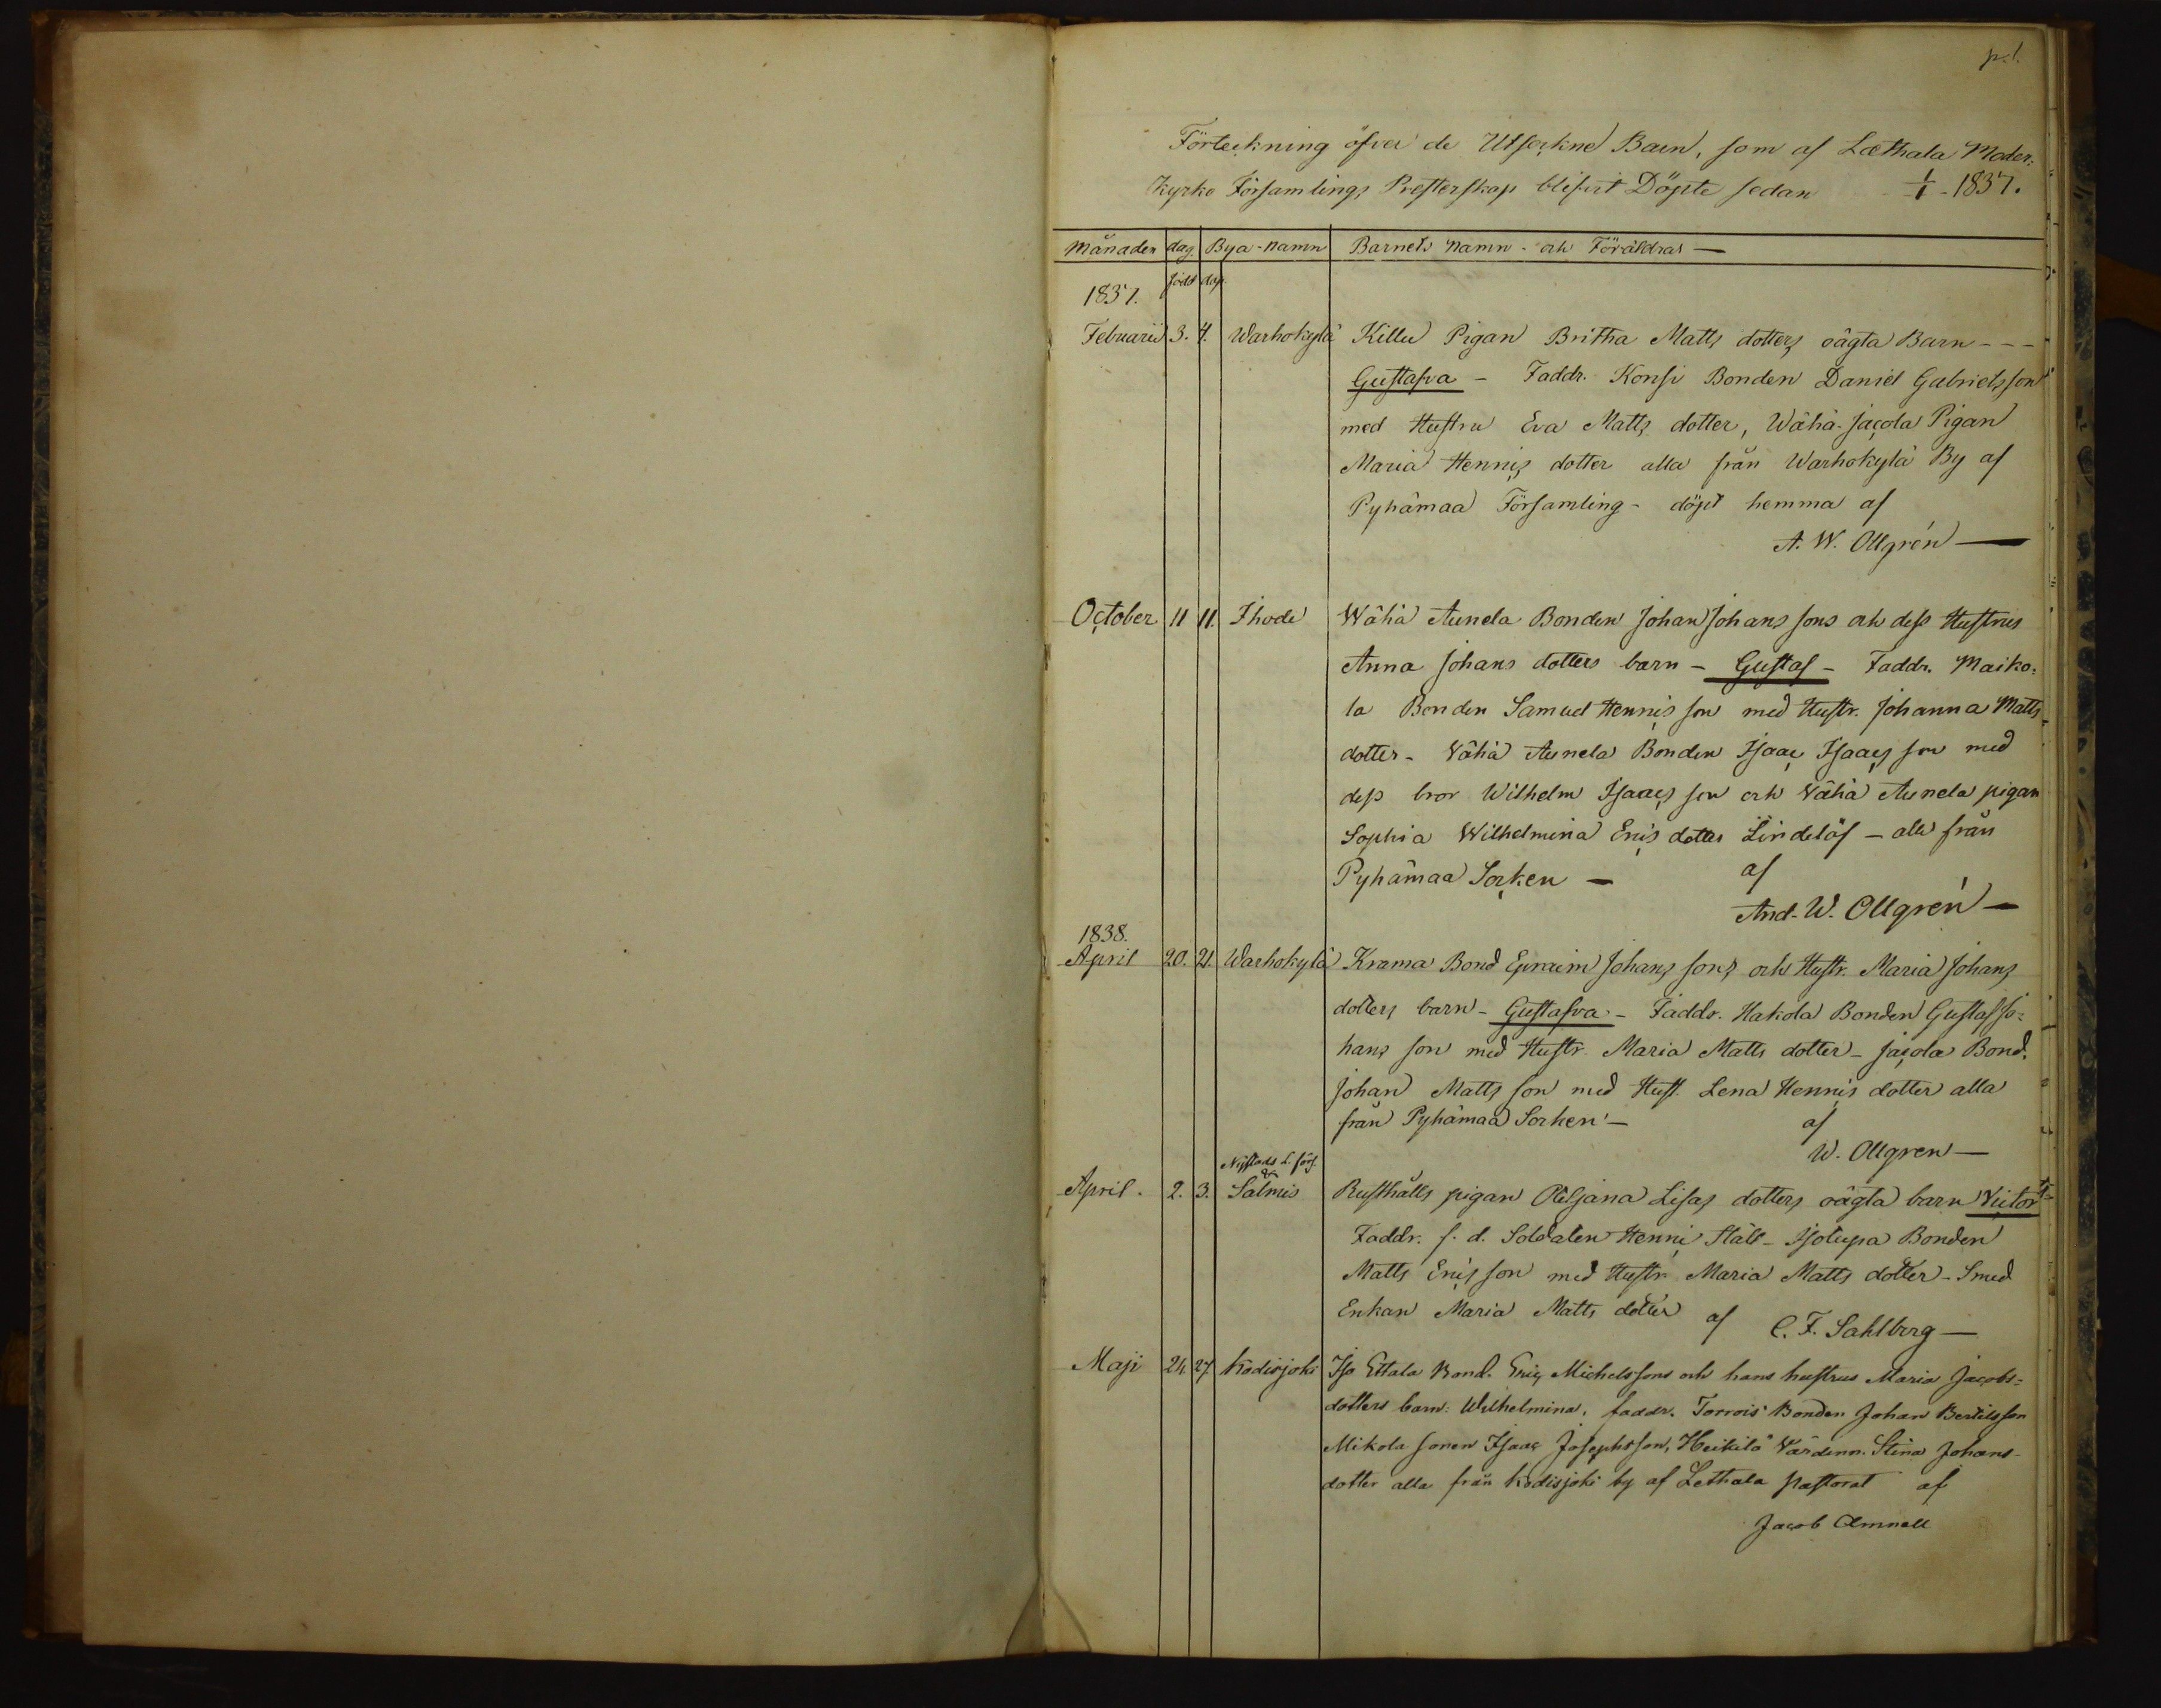 p. 1.
Förteckning öfver de Utsockne Barn, som af Læthala Moder-
kyrko Församlings Presterskap blifvit Döpte sedan 1/1 - 1837.
Månaden dag. Bya-namn Barnets namn - och Föräldrar —
1837. född döp.
Februarii 3. 4. Warhokylä Killu Pigan Britha Matts dotters oägta Barn - - -
Gustafva - Faddr. Konsi Bonden Daniel Gabrielsson
med Hustru Eva Matts dotter, Wähä-jacola Pigan
Maria Henrics dotter alla från Warhokylä By af
Pyhämaa Församling - döpt hemma af
A. W. Ollgrén —
October 11 11. Ihode Wähä Aunela Bonden Johan Johans sons och dess Hustrus
Anna Johans dotters barn - Gustaf - Faddr. Maiko-
la Bonden Samuel Henrics son med Hustr. Johanna Matts
dotter - Vähä Aunela Bonden Isaac Isaacs son med
dess bror Wilhelm Isaacs son och Vähä Aunela pigan
Sophia Wilhelmina Erics dotter Lindelöf - alla från
Pyhämaa Socken — af
And. W. Ollgrén —
1838.
April 20. 21. Warhokylä Krama Bond Epraim Johans sons och Hustr. Maria Johans
dotters barn - Gustafva - Faddr. Hakola Bonden Gustaf Jo-
hans son med Hustr. Maria Matts dotter - Jacola Bond.
Johan Matts son med Hust. Lena Henrics dotter alla
från Pyhämaa Socken - af
W. Ollgren —
Nystads L. förs.
April. 2. 3. Salmis Rusthålls pigan Uljana Lisas dotters oägta barn Victor -
Faddr. f. d. Soldaten Henric Ståls - Isotupa Bonden
Matts Erics son med Hustr. Maria Matts dotter - Smed
Enkan Maria Matts dotter af C. F. Sahlberg —
Maji 24. 27. Kodisjoki Iso Ettala Bond. Eric Michelssons och hans hustrus Maria Jacobs-
dotters barn: Wilhelmina, faddr. Torrois Bonden Johan Bertilsson
Mikola sonen Isaac Josephsson, Heikilä Värdinn. Stina Johans-
dotter alla från Kodisjoki by af Lethala pastorat af
Jacob Amnell